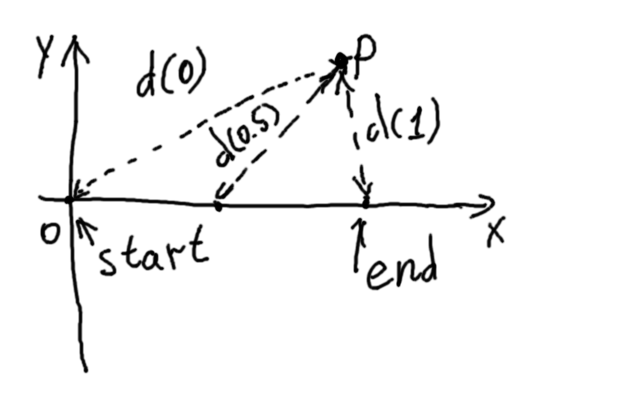 Y
P
d(0)
d(0.5)
d(1)
0
start
end
X